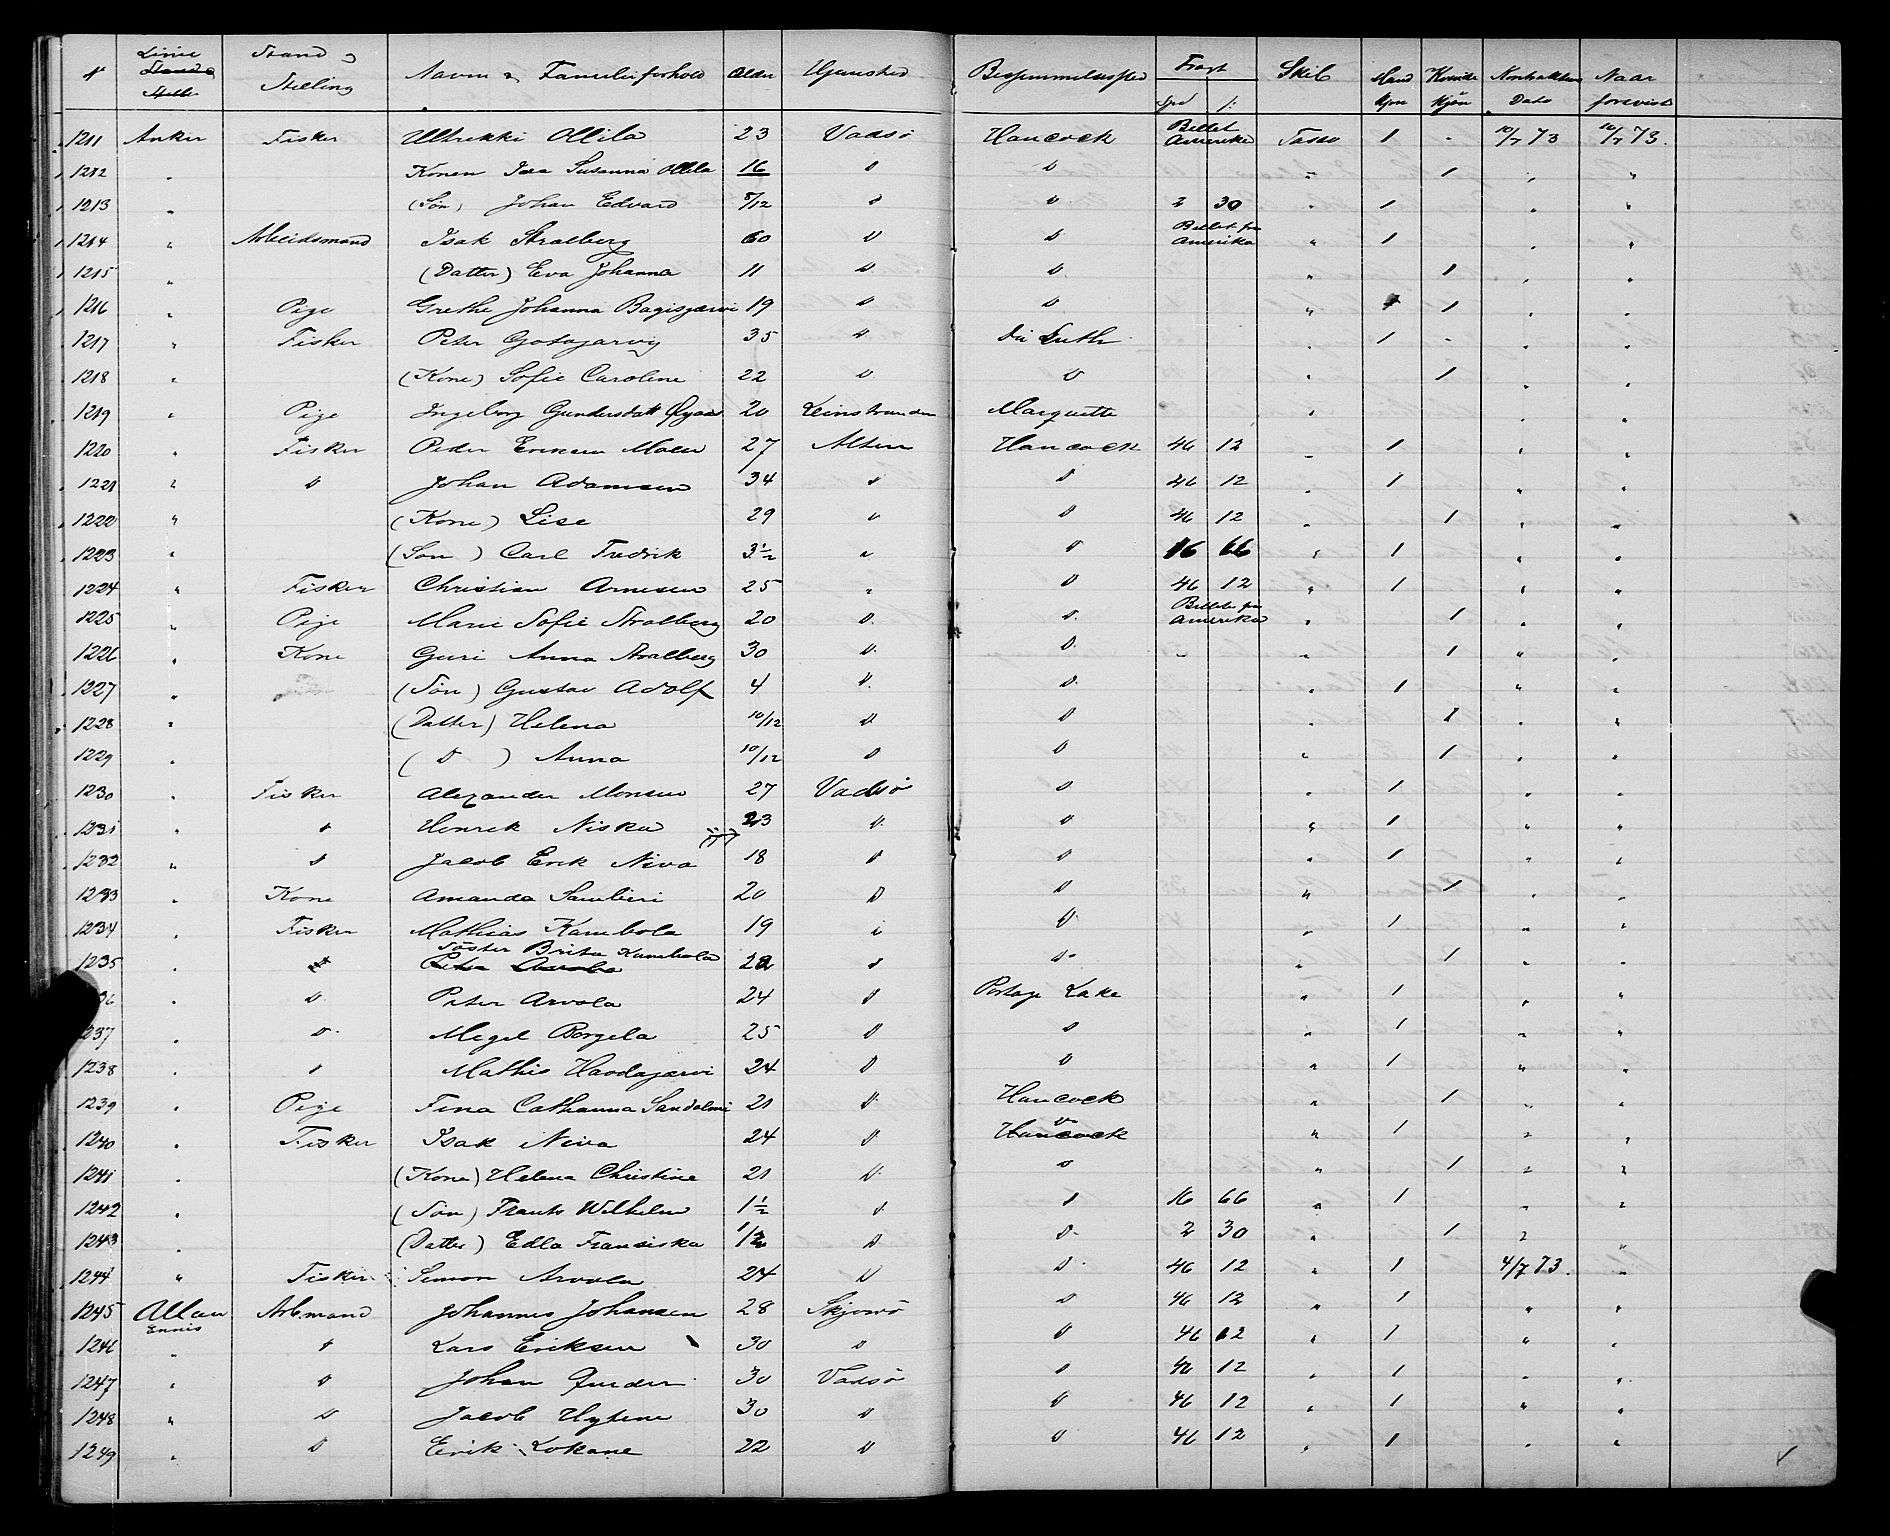 № Linie Stand & Stilling Navn & Familieforhold Alder Hjemsted Bestemmelsessted Fragt Skib Mand Kjøn Kvinde Kjøn Kontraktens Dato Naar forevist
Spd ß:
1211 Anker Fisker Ulrikki Ollila 23 Vadsö Hancock Billet Amerika Tasso 1 - 10/7 73 10/7 73.
1212 " Konen Susanna Ollila 16 D D " 1 " "
1213 " (Søn) Johan Edvard 8/12 D D 2 30 " 1 " "
1214 " Arbeidsmand Isak Stralberg 60 D D Billet fra Amerika " 1 " "
1215 " (Datter) Eva Johanna 11 D D " 1 " "
1216 " Pige Grethe Johanna Bagisjærvi 19 D D " 1 " "
1217 " Fisker Peter Gotajarvy 35 D Du Luth " 1 - " "
1218 " (Kone) Sofie Caroline 22 D D " 1 " "
1219 " Pige Ingeborg Gundersdatt Øyaas 20 Leinstranden Marquette "
1220 " Fisker Peder Eriksen Moen 27 Alten Hancock 46 12 " 1 " "
1221 " D Johan Adamsen 34 D D 46 12 " 1 " "
1222 " (Kone) Lise 29 " D 46 12 " 1 " "
1223 " (Søn) Carl Fredrik 3½ " D 16 66 " 1 " "
1224 " Fisker Christian Arnesen 25 " D 46 12 " 1 " "
1225 " Pige Marie Sofie Stralberg 20 D D Billet fra Amerika " 1 " "
1226 " Kone Guri Anna Stralberg 30 D D " " 1 " "
1227 " (Søn) Gustav Adolf 4 D D " 1 " "
1228 " (Datter) Helena 10/12 D D 1 " "
1229 " (D) Anna 10/12 D D " 1 " "
1230 " Fisker Alexander Monsen 27 Vadsö D " 1 " "
1231 " D Henrik Niska 23 D D " 1 " "
1232 " D Jacob Erik Niva 18 D D " 1 " "
1233 " Kone Amanda 20 D D " 1 " "
1234 " Fisker Mathias Kambola 19 " D " 1 " "
1235 " Søster Brita Kambola 22 D D " 1 " "
36 " D Peter Arvola 24 D Portage Lake " 1 " "
1237 " D Megel Borgela 25 D D " 1 " "
1238 " D Mathis Havdajærvi 24 D D " 1 " "
1239 " Pige Fina Cathanna 21 D Hancock " 1 " "
1240 " Fisker Isak Niva 24 D D Hancock " 1 " "
1241 " (Kone) Helena Christine 21 D D " 1 " "
1242 " (Søn) Frants Wilhelm 1½ D D 16 66 " 1 " "
1243 " (Datter) Edla Franciska 1/2 D D 2 30 " 1 " "
1244 " Fisker Simon Arvola 24 D D 46 12 " 1 4/7 73. "
1245 Allan Ennis Arb.mand Johannes Johansen 28 Skjervö D 46 12 " 1 " "
1246 " D Lars Eriksen 30 D D 46 12 " 1 " "
1247 " D Johan 30 Vadsö D 46 12 " 1 " "
1248 " D Jacob Hytene 30 D D 46 12 " 1 " "
1249 " D Erik Lokane 22 D D 46 12 " 1 " "